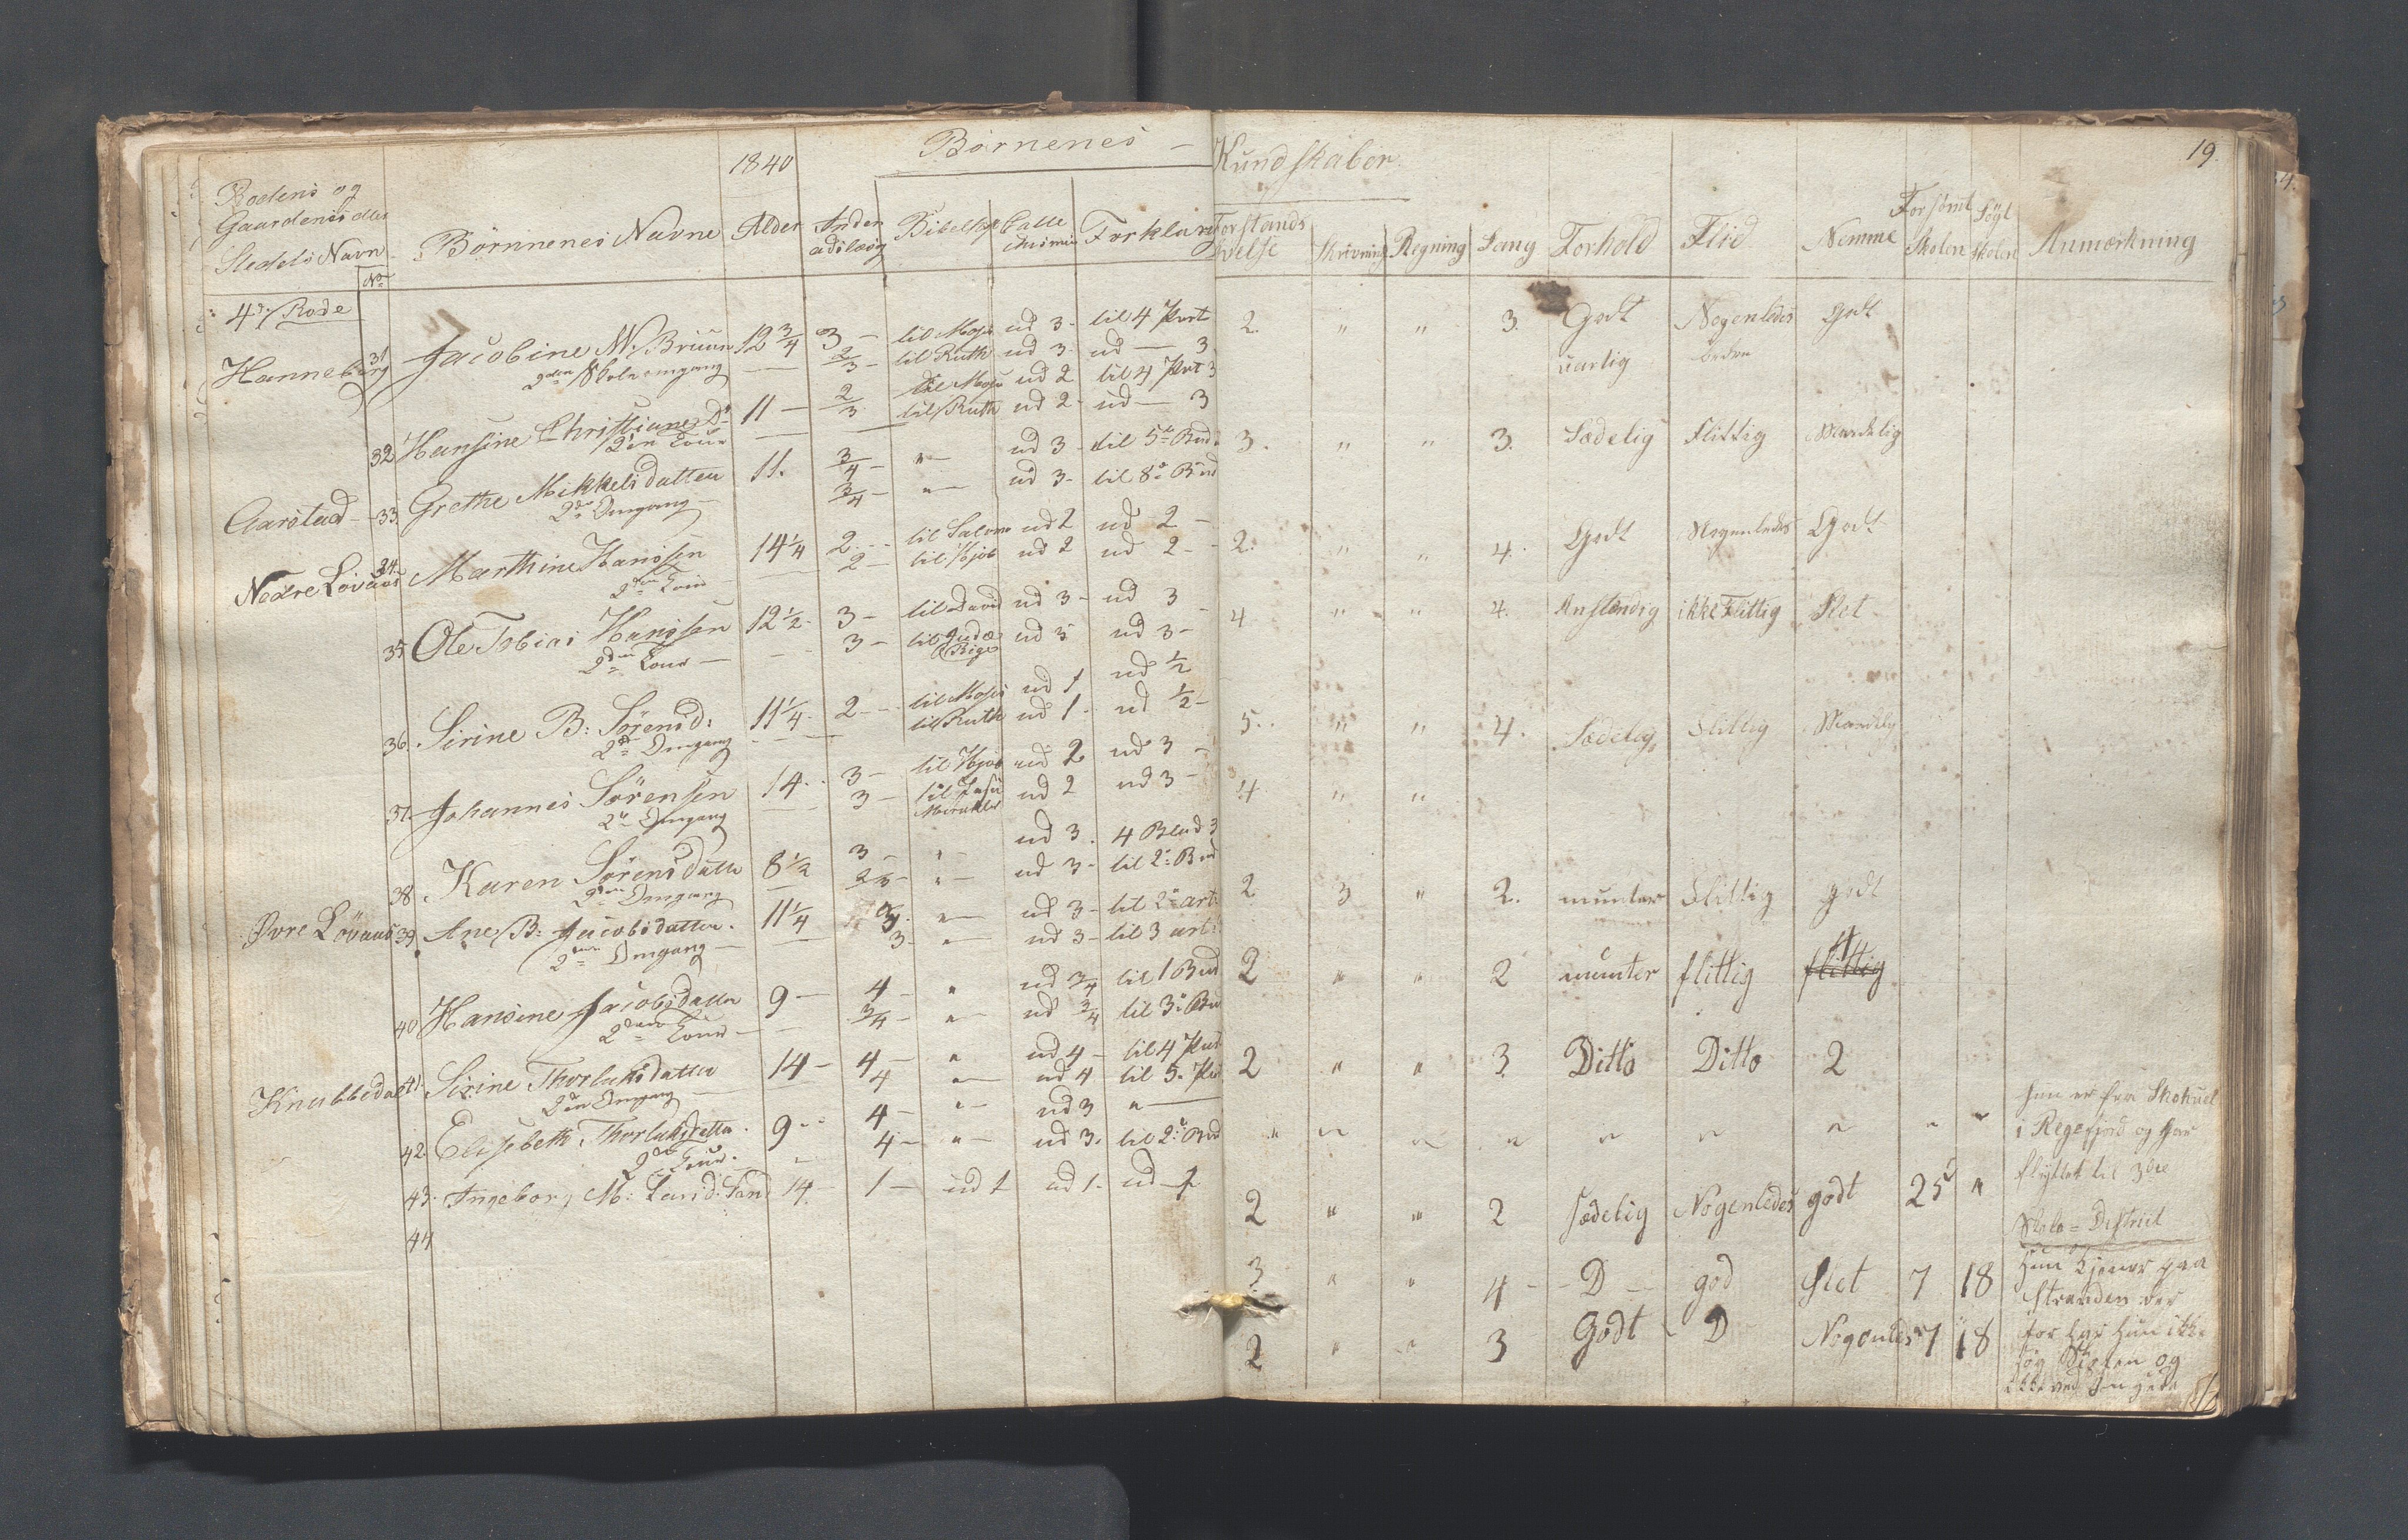 1840 Børnenes — Kundskaber 19.
Rodens og
Gaardenes eller
Stedets Navn No Børnnenes Navne Alder Inden adslæsg Bibelhst Catte chismus Forklarg Forstands øvelse Skrivning Regning Sang Forhold Flid Nemme Forsømt Skolen Søgt Skolen Anmærkning
4de Rode
Hanneberg 31 Jacobine N. Bruun 12 3/4 3 — til Mose ud 3 - til 4 Part 2. " " 3. Godt Nogenledes godt
2den Skoleomgang 2/3 - til Ruth ud 3 ud — 3 uartig bedre
32 Hansine Christiane Do 11 — 2/3 til Mose ud 2 til 4 Part 3 3. " " 3. Sædelig Flittig Maadelig
2den Tour til Ruth ud 2 - ud — 3
Aarstad — 33. Grethe Mikkelsdatter 11. 3/4 - " — ud 3 - til 5te Bud 2. " " 4. Godt Nogenledes Godt
2den Omgang — 3/4 - " — ud 3 - til 8de Bud
Nedre Lövaas 34. Marthine Hanssen 14 1/4 2 - - til Salomo ud 2 ud 2 — 4 " " 4. Anstændig ikke Flittig Slet
2den Tour 2 — til Hjob ud 2 ud 2 -
35 Ole Tobias Hanssen 12 1/2 - 3 — til David ud 3 - ud 3 5. " " 4. Sædelig Flittig Maadelig
2den Tour — 3 — til Judæ Rige ud 3 ud 3 -
36. Sirine B: Sörensd: 11 1/4 - 2 - - til Moses ud 1 ud 1/2 4 " "
2de Omgang til Ruth ud 1 - ud 1/2 -
37. Johannes Sörensen 14. - 3 — til Hjob ud 2 ud 3 — 2 3 " 2. munter Flittig godt
2de Omgang 3 — til Jesu Mirakler ud 2 ud 3 —
38 Karen Sörensdatter 8 1/2 3 — " - ud 3. 4 Blad 3 2 " " 2 munter flittig
2den Omgang 2/3 - " - ud 3 - til 2de Bud
Övre Lövaas 39. Ane B: Jacobsdatter. 11 1/4 3. " — ud 3 - til 2de art. 2 " " 3. Ditto Ditto 2
2den Omgang — 3 - " — ud 3 - til 3 art:
40 Hansine Jacobsdatter 9 — 4 - " ud 3/4 til 1 Bud " " " " " " " " " Hun er fra Skohuel
2den Tour — 3/4 - " — ud 3/4 til 3de Bud i Regefjord og har
Knubbedal 41. Sirine Thorlaksdatter 14 — 4 — " ud 4 - til 4 Part 2 " " 2 sædelig Nogenledes godt 25 " flyttet til 3die
2den Omgang — 4 " — ud 4 til 5. Part Skole = District
42. Elisebeth Thorlaksdatter. 9 - - 4 — " — ud 3 " — 3 " " 4 - - D — god slet 7 18 Hun tjener paa
2den Tour. 4 - " — ud 3. til 2de Bud Stranden der
43. Ingebor, M: Larsd: 14 — 1 — ud 1 ud 1. ud — 2 " " 3 Godt D Nogenledes 7 18 for har Hun ikke
44 søg Skolen og